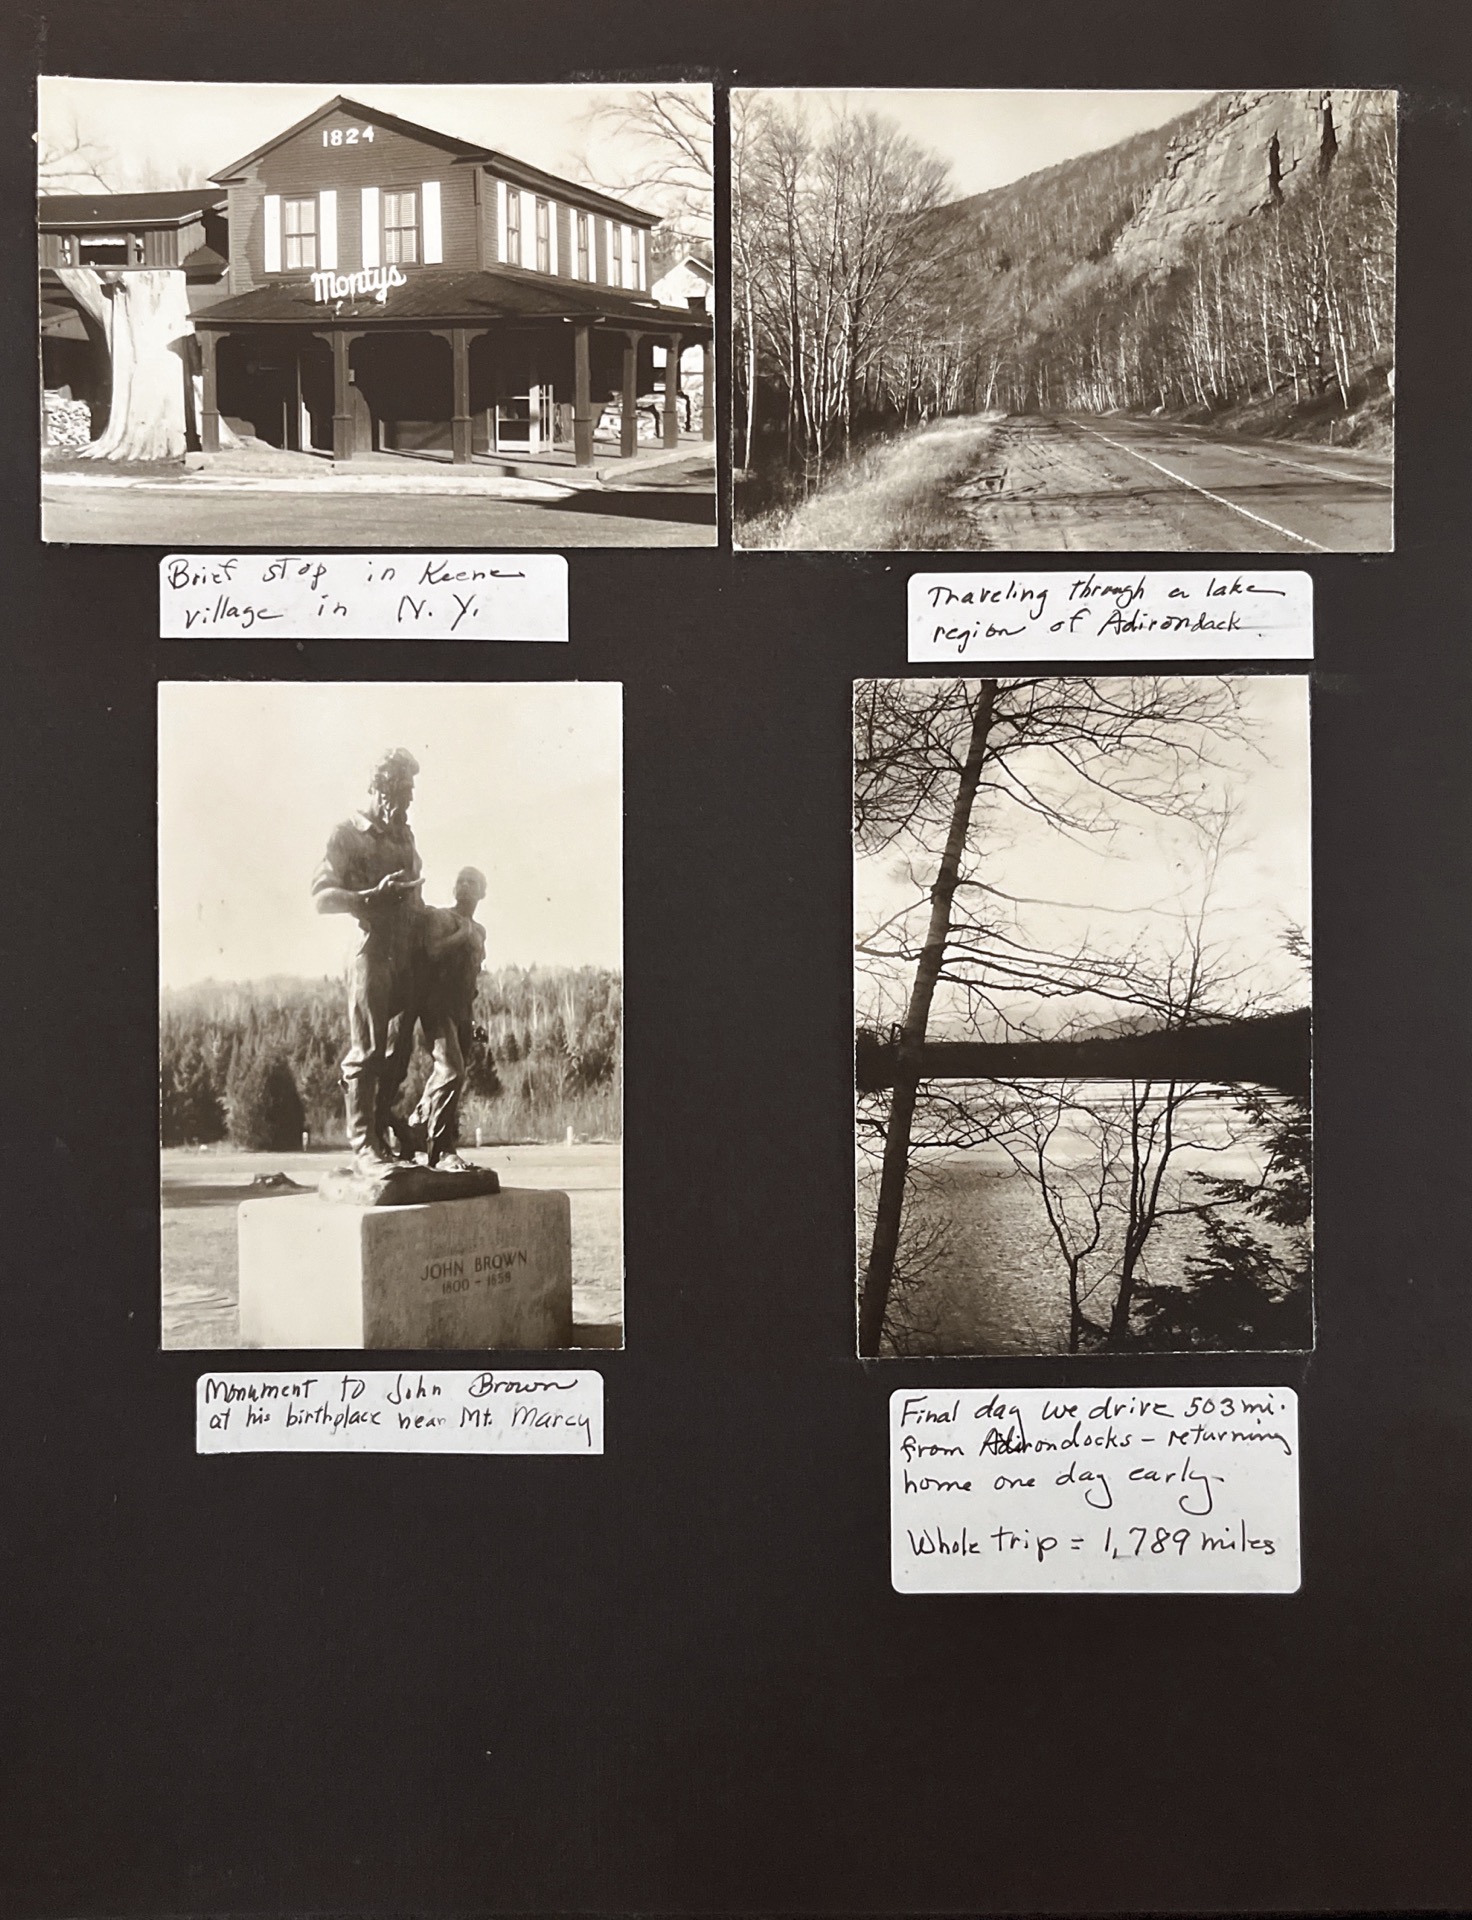 1824
Montys
Brief stop in Keene
village in N. Y.
Traveling through a lake
region of Adirondack.
JOHN BROWN
1800 - 1859
Monument to John Brown
at his birthplace near Mt. Marcy
Final day we drive 503 mi.
from Adirondocks - returning
home one day early.
Whole trip = 1,789 miles